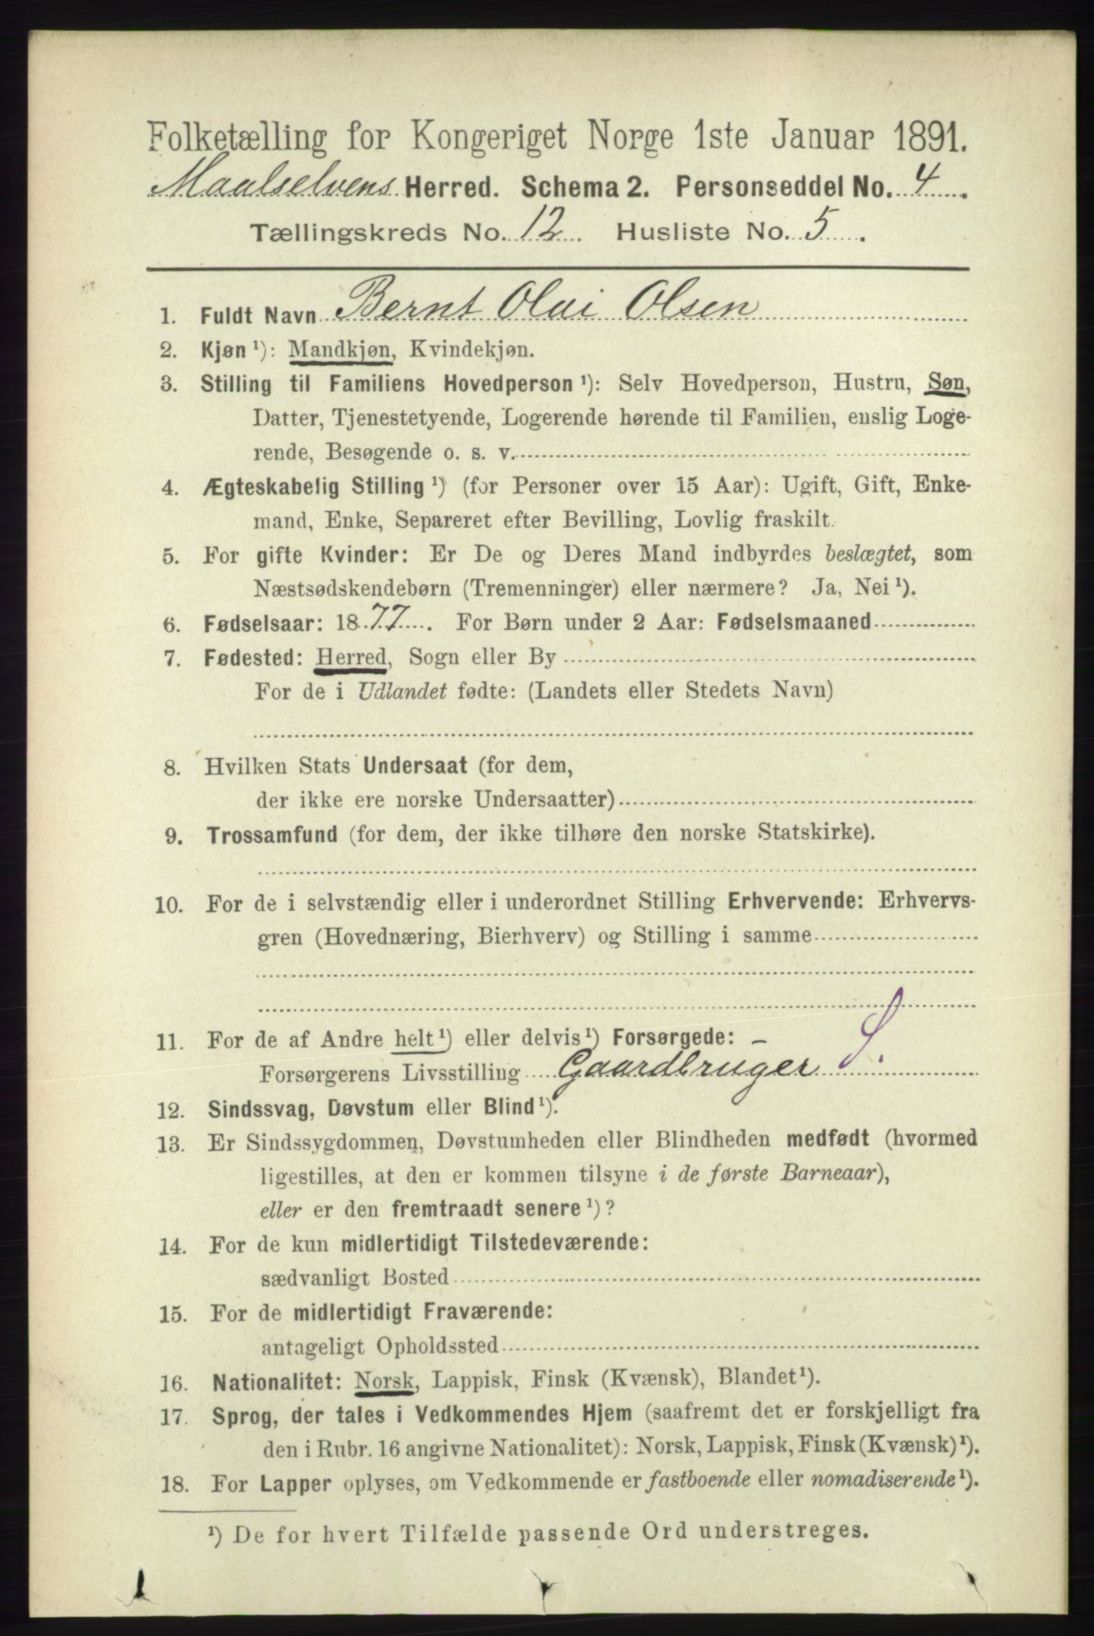 Folketælling for Kongeriget Norge 1ste Januar 1891.
Maalselvens Herred. Schema 2. Personseddel No. 4.
Tællingskreds No. 12. Husliste No. 5.
1. Fuldt Navn Bernt Olai Olsen
2. Kjøn ¹): Mandkjøn, Kvindekjøn.
3. Stilling til Familiens Hovedperson ¹): Selv Hovedperson, Hustru, Søn,
Datter, Tjenestetyende, Logerende hørende til Familien, enslig Loge-
rende, Besøgende o. s. v.
4. Ægteskabelig Stilling ¹) (for Personer over 15 Aar): Ugift, Gift, Enke-
mand, Enke, Separeret efter Bevilling, Lovlig fraskilt.
5. For gifte Kvinder: Er De og Deres Mand indbyrdes beslægtet, som
Næstsødskendebørn (Tremenninger) eller nærmere? Ja, Nei ¹).
6. Fødselsaar: 1877. For Børn under 2 Aar: Fødselsmaaned
7. Fødested: Herred, Sogn eller By
For de i Udlandet fødte: (Landets eller Stedets Navn)
8. Hvilken Stats Undersaat (for dem,
der ikke ere norske Undersaatter)
9. Trossamfund (for dem, der ikke tilhøre den norske Statskirke).
10. For de i selvstændig eller i underordnet Stilling Erhvervende: Erhvervs-
gren (Hovednæring, Bierhverv) og Stilling i samme
11. For de af Andre helt ¹) eller delvis ¹) Forsørgede: – S.
Forsørgerens Livsstilling Gaardbruger
12. Sindssvag, Døvstum eller Blind ¹).
13. Er Sindssygdommen, Døvstumheden eller Blindheden medfødt (hvormed
ligestilles, at den er kommen tilsyne i de første Barneaar),
eller er den fremtraadt senere ¹)?
14. For de kun midlertidigt Tilstedeværende:
sædvanligt Bosted
15. For de midlertidigt Fraværende:
antageligt Opholdssted
16. Nationalitet: Norsk, Lappisk, Finsk (Kvænsk), Blandet ¹).
17. Sprog, der tales i Vedkommendes Hjem (saafremt det er forskjelligt fra
den i Rubr. 16 angivne Nationalitet): Norsk, Lappisk, Finsk (Kvænsk) ¹).
18. For Lapper oplyses, om Vedkommende er fastboende eller nomadiserende ¹).
¹) De for hvert Tilfælde passende Ord understreges.